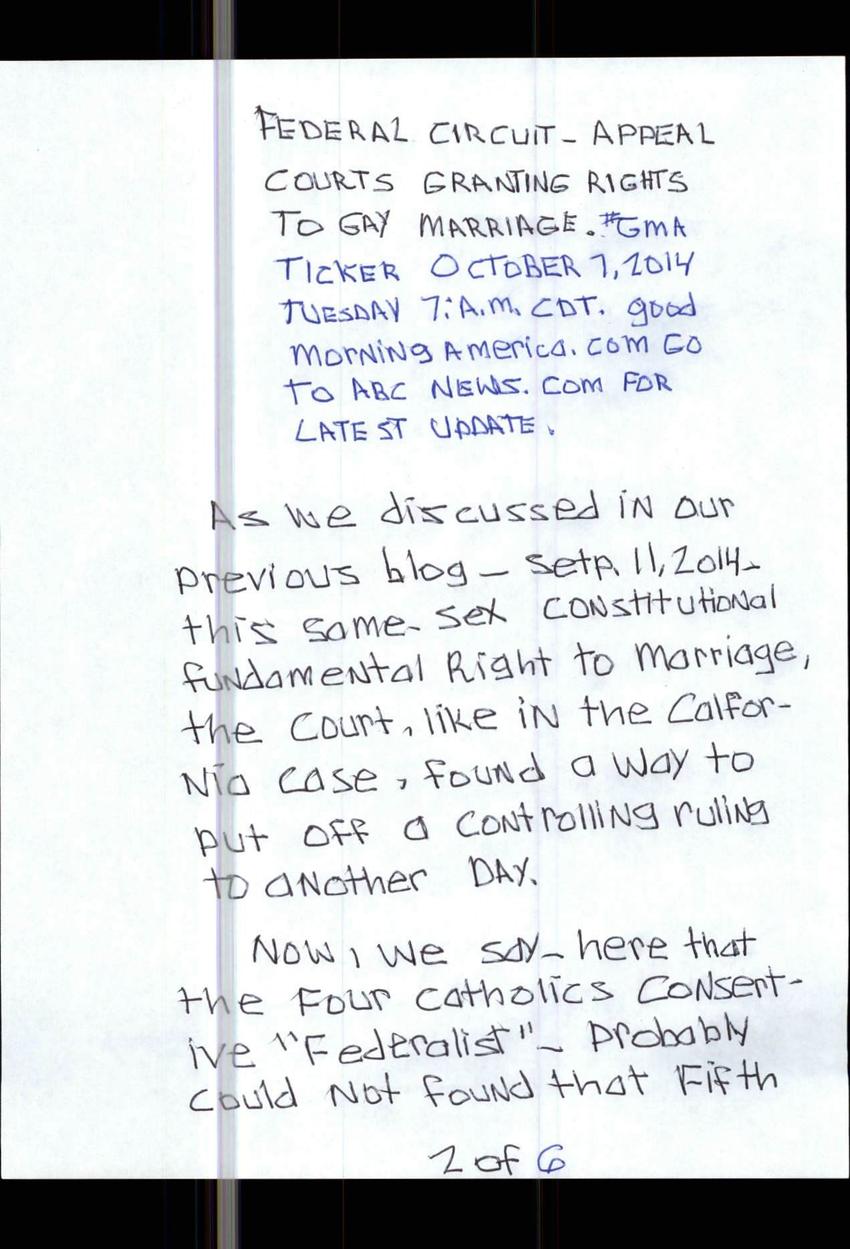 FEDERAL CIRCUIT - APPEAL
COURTS GRANTING RIGHTS
TO GAY MARRIAGE. #GMA
TICKER OCTOBER 7, 2014
TUESDAY 7: A.M. CDT. good
morning America. com GO
TO ABC NEWS. COM FOR
LATEST UPDATE.
As we discussed in our
previous blog - setp. 11, 2014-
this same-sex constitutional
fundamental Right to marriage,
the Court, like in the Calfor-
nia case, found a way to
put off a controlling ruling
to another DAY.
Now, we say - here that
the Four Catholics Consert-
ive "Federalist" - probably
could not found that Fifth
2 of 6